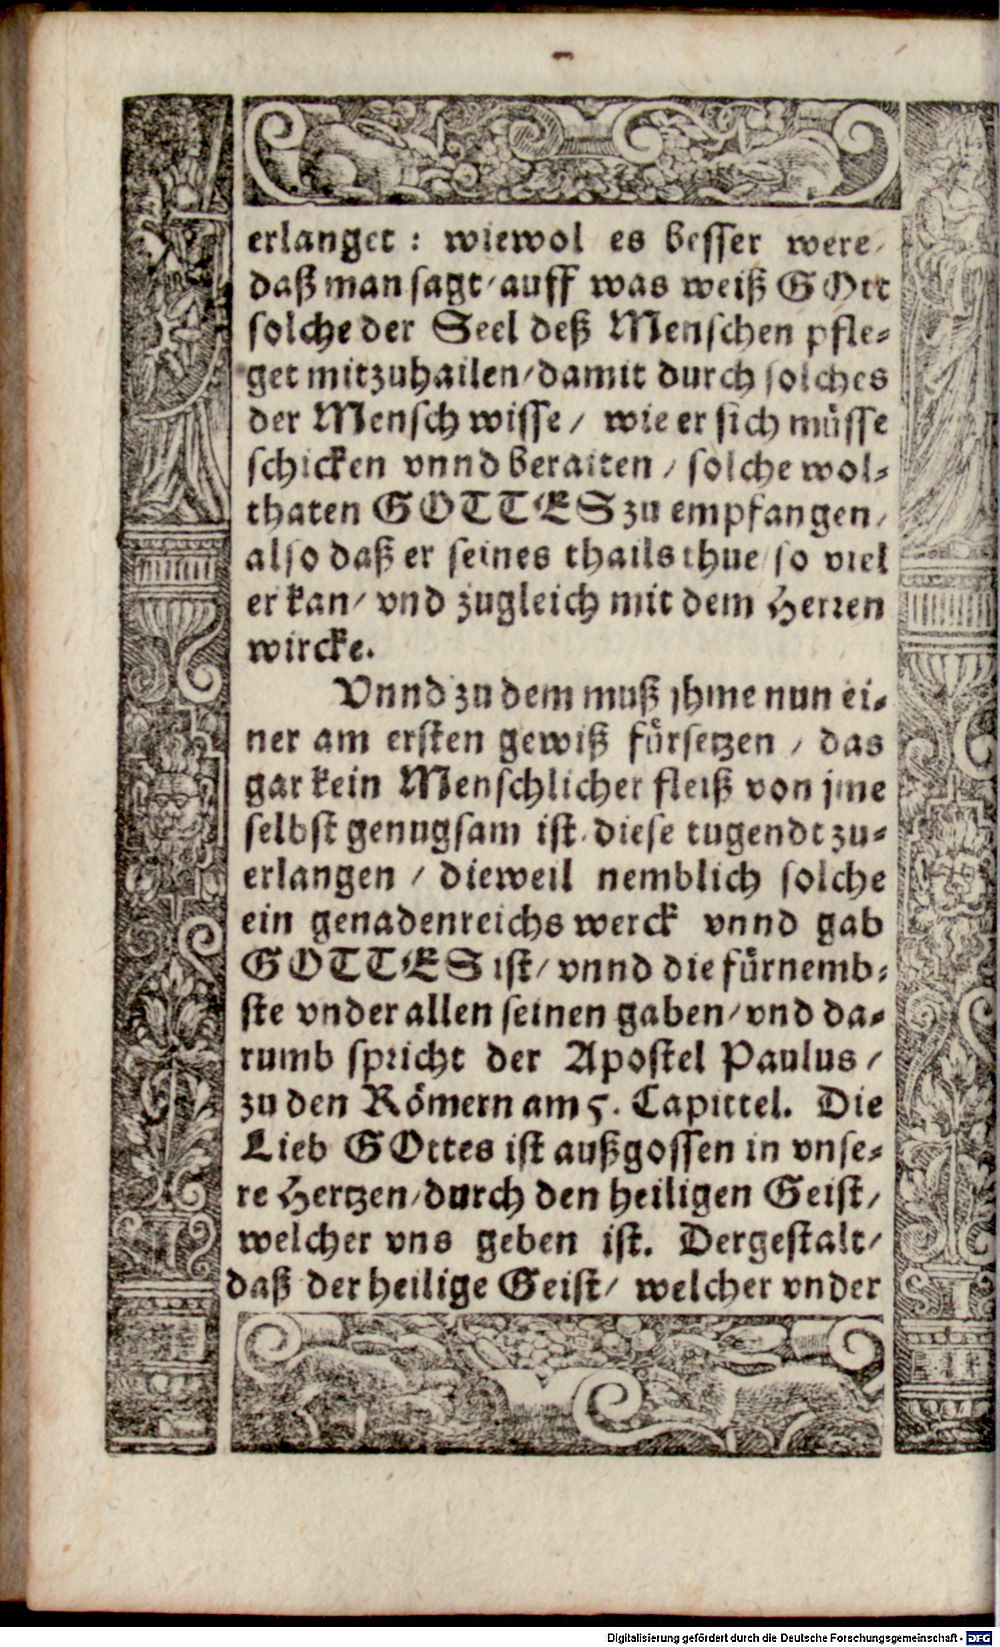 erlanget : wiewol es besser were/
daß man sagt/ auff was weiß GOtt
solche der Seel deß Menschen pfle-
get mitzuhailen/ damit durch solches
der Mensch wisse / wie er sich müsse
schicken vnnd beraiten / solche wol-
thaten GOTTES zu empfangen/
also daß er seines thails thue/ so viel
er kan/ vnd zugleich mit dem Herren
wircke.
Vnnd zu dem muß jhme nun ei-
ner am ersten gewiß fürsetzen / das
gar kein Menschlicher fleiß von jme
selbst genugsam ist/ diese tugendt zu-
erlangen / dieweil nemblich solche
ein genadenreichs werck vnnd gab
GOTTES ist/ vnnd die fürnemb-
ste vnder allen seinen gaben/ vnd da-
rumb spricht der Apostel Paulus /
zu den Römern am 5. Capittel. Die
Lieb GOttes ist außgossen in vnse-
re Hertzen/ durch den heiligen Geist/
welcher vns geben ist. Dergestalt/
daß der heilige Geist/ welcher vnder
Digitalisierung gefördert durch die Deutsche Forschungsgemeinschaft - DFG